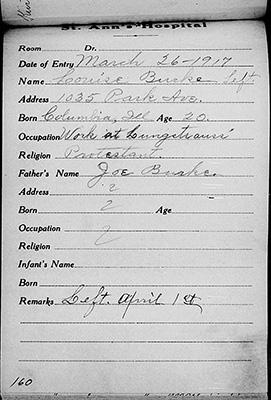 St. Ann's Hospital
Room Dr.
Date of Entry March 26-1917
Name Louise Burke Left.
Address 1035 Park Ave.
Born Columbia, Ill Age 20.
Occupation Work at Lungstrauss'
Religion Protestant.
Father's Name Joe Burke.
Address ?
Born ? Age
Occupation ?
Religion
Infant's Name
Born
Remarks Left. April 1st
160